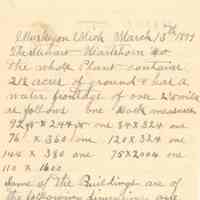 Muskegon Mich March 15th 1899
The Whole Plant contains
21½ acres of ground & has a
water frontage of over 2½ mile
as follows one Dock measures
92 x 244 one 84 x 324 one
76 x 360 one 120 x 324 one
144 x 380 one 75 x 2004 one
110 x 1600
Some of the Buildings are of
the following dimensions one